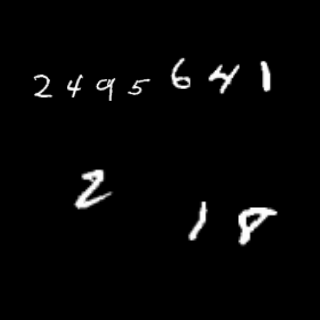 2495641
2 18